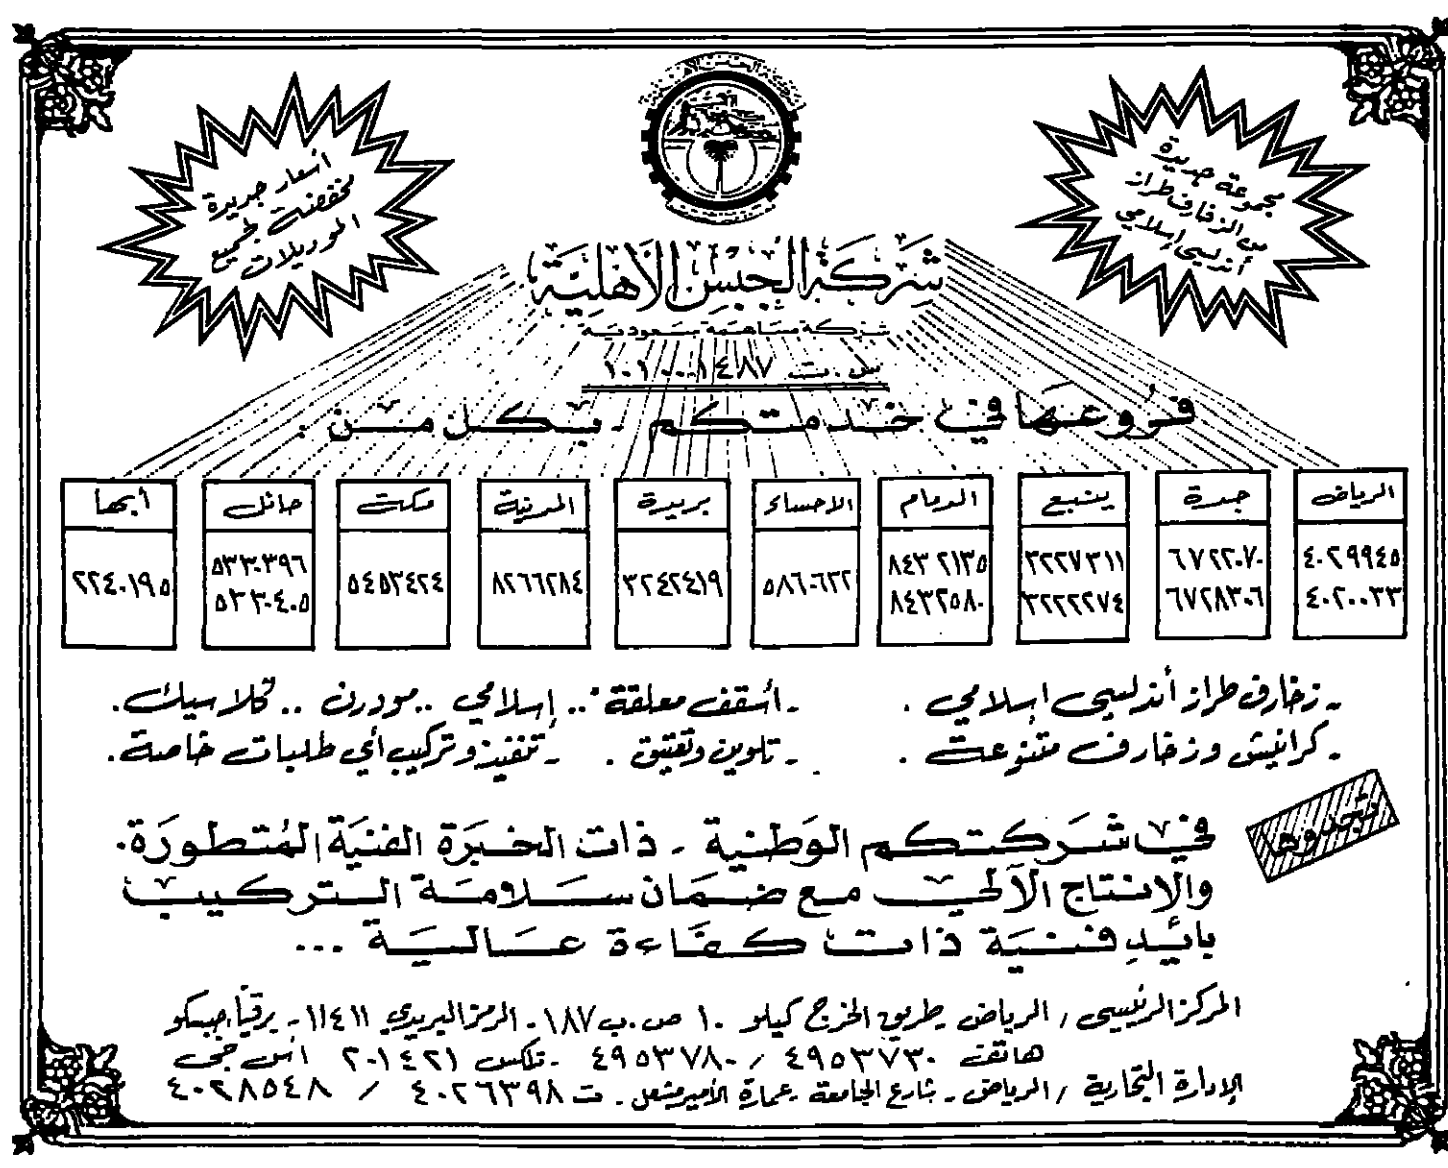 مجموعة جديدة
من الزخارف طراز
أندلسي إسلامي
أسعار جديدة
مخفضة لجميع
الموديلات
شركة الجبس الأهلية
شركة مساهمة سعودية
س.ت ١٠١٠٠٠١٤٨٧
فروعها في خدمتكم - بكل من :
الرياض جدة ينبع الدمام الاحساء بريدة المدينة مكة حائل أبها
٤٠٢٩٩٤٥ ٦٧٢٢٠٧٠ ٣٢٢٧٣١١ ٨٤٣٢١٣٥ ٥٨٦٠٦٣٢ ٣٢٤٢٤١٩ ٨٢٦٦٢٨٤ ٥٤٥٣٤٢٤ ٥٣٣٠٣٩٦ ٢٢٤٠١٩٥
٤٠٢٠٠٣٣ ٦٧٢٨٣٠٦ ٣٢٢٢٢٧٤ ٨٤٣٢٥٨٠ ٥٣٣٠٤٠٥
- زخارف طراز أندلسي اسلامي . - أسقف معلقة .. إسلامي .. مودرن .. كلاسيك .
- كرانيش وزخارف متنوعة . - تلوين وتعتيق . - تنفيذ وتركيب أي طلبات خاصة .
تجدوها
في شركتكم الوطنية - ذات الخبرة الفنية المُتطورة.
والانتاج الآلي مع ضمان سلامة التركيب
بأيدٍ فنية ذات كفاءة عالية ...
المركز الرئيسي / الرياض - طريق الخرج كيلو ١٠ ص.ب ١٨٧ - الرمز البريدي ١١٤١١ - برقياً جبسكو
هاتف ٤٩٥٣٧٣٠ / ٤٩٥٣٧٨٠ - تلكس ٢٠١٤٢١ اس جي
الإدارة التجارية / الرياض - شارع الجامعة - عمارة الأمير مشعل - ت ٤٠٢٦٣٩٨ / ٤٠٢٨٥٤٨